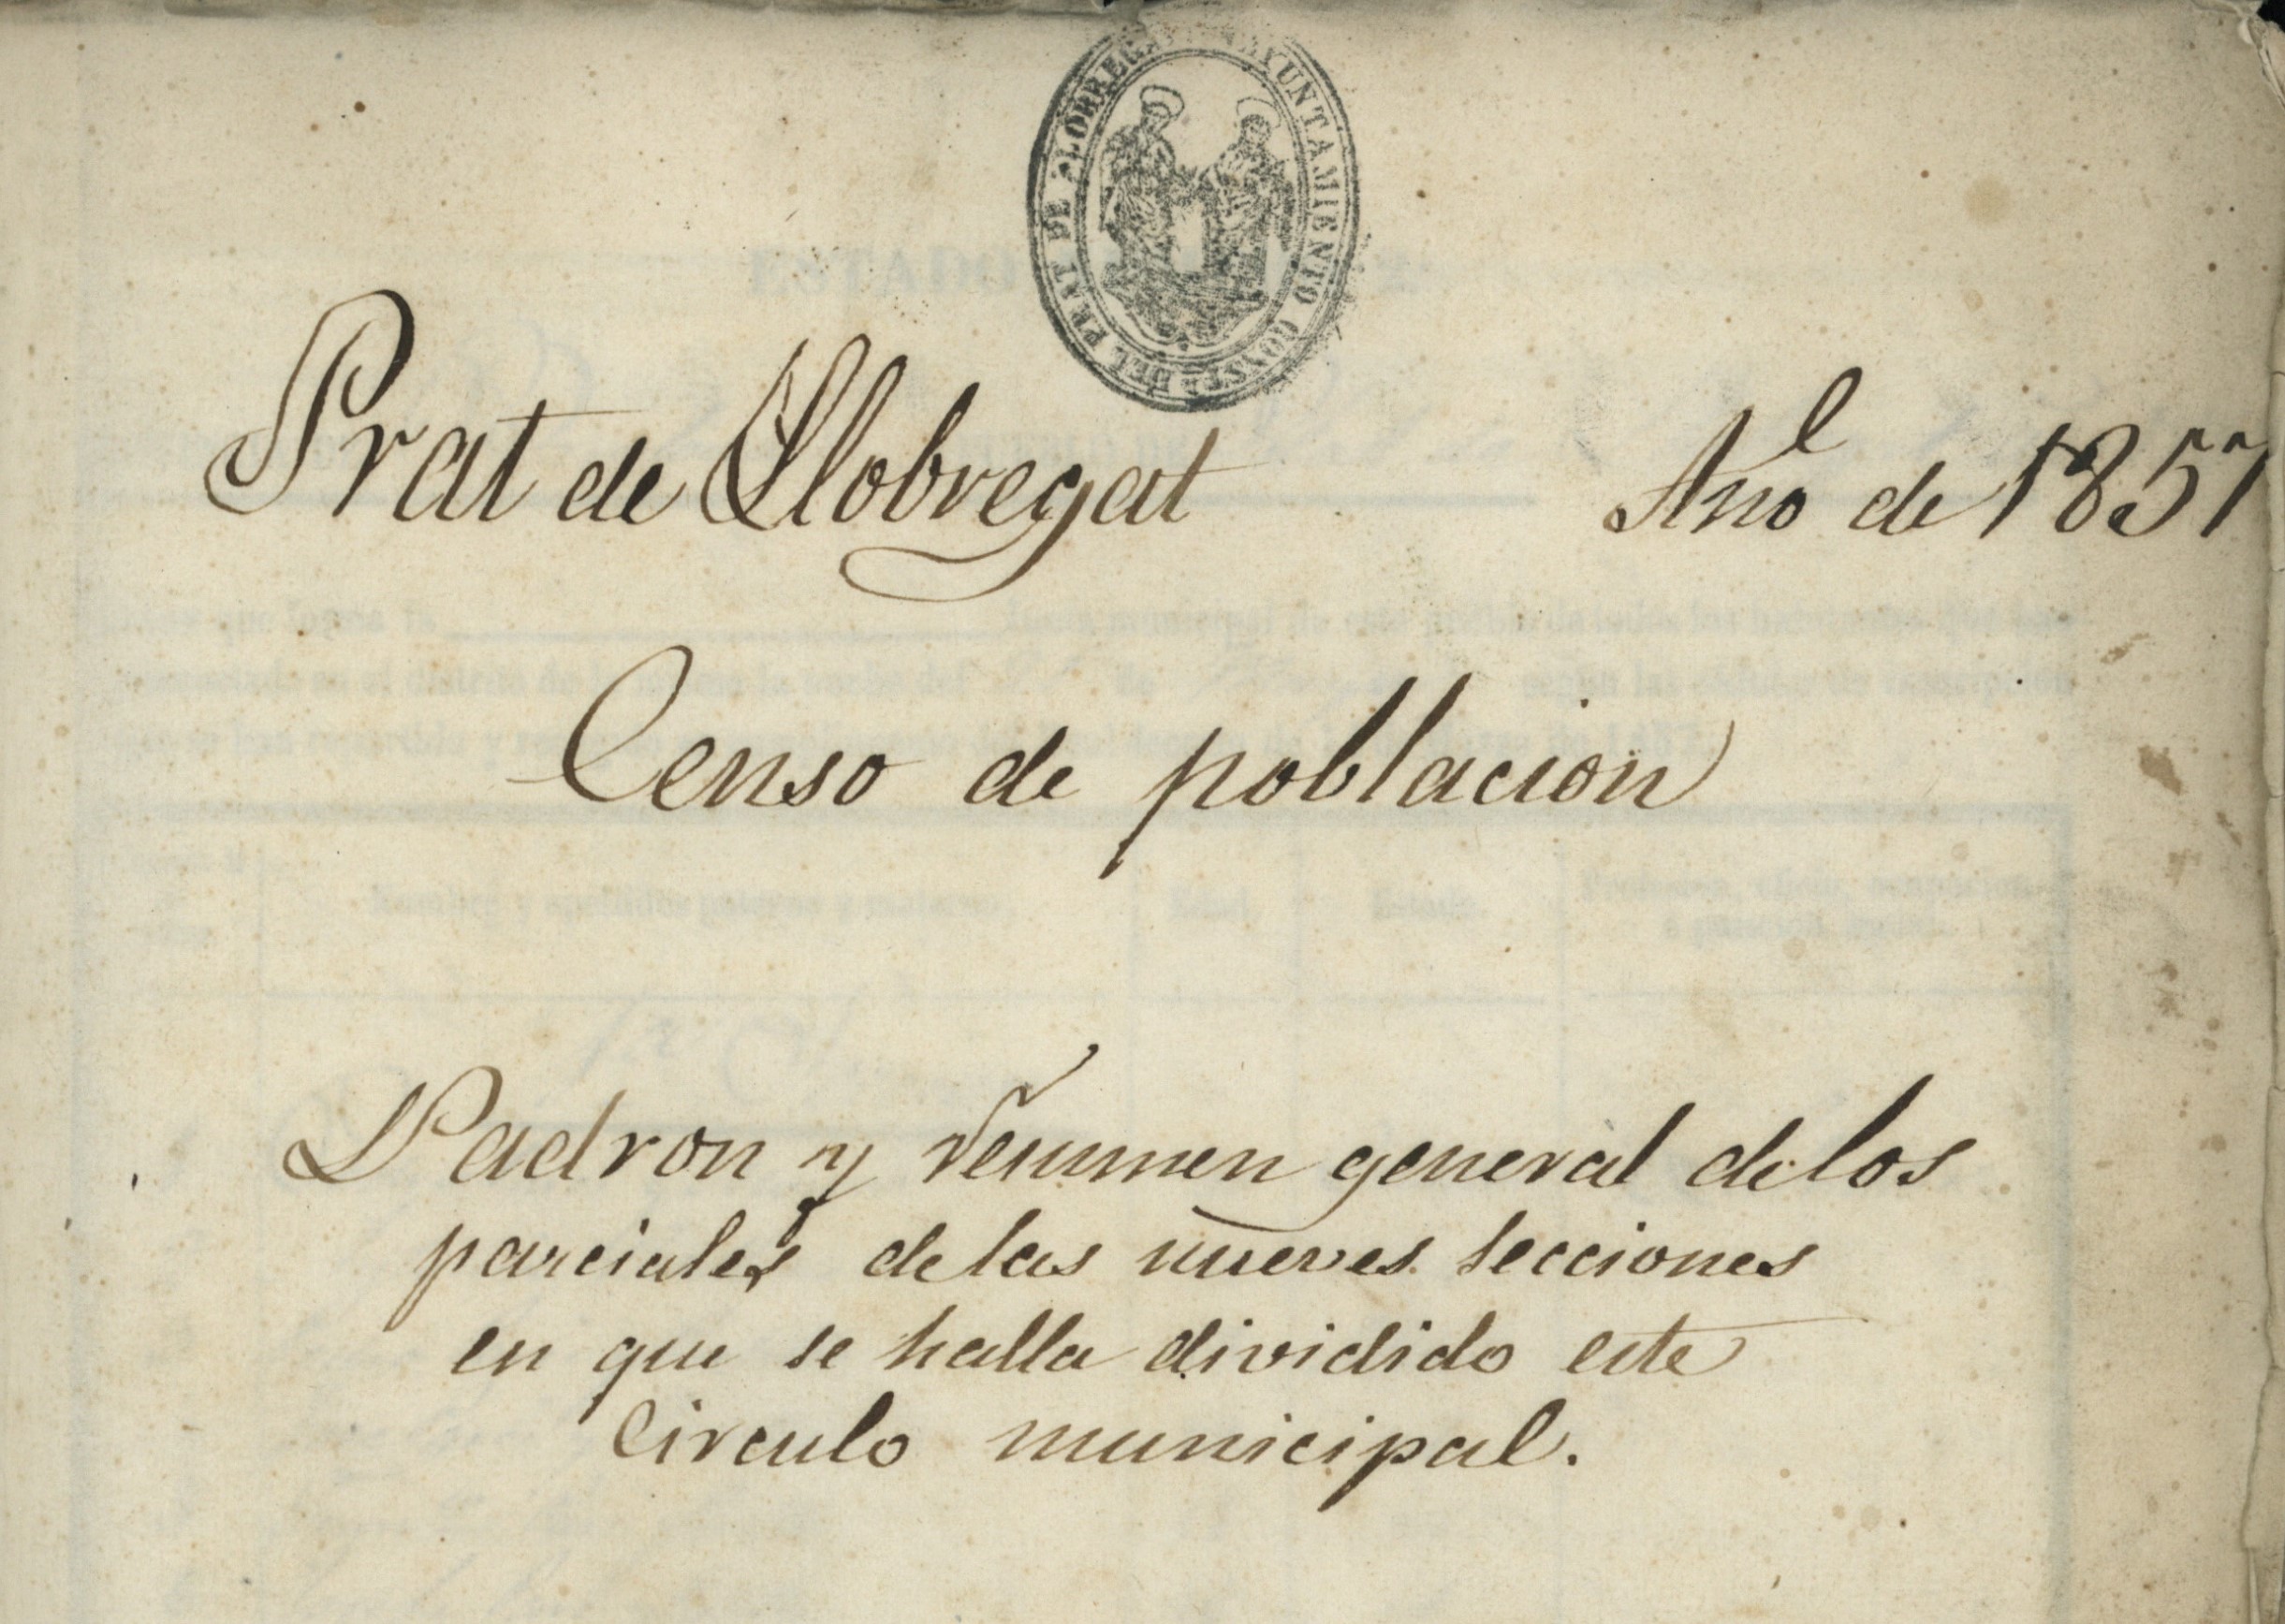 AYUNTAMIENTO CONST. DEL PRAT DE LLOBREGAT
Prat de Llobregat Año de 1857
Censo de poblacion
Padron y resumen general de los
parciales de las nueves secciones
en que se halla dividido este
Circulo municipal.